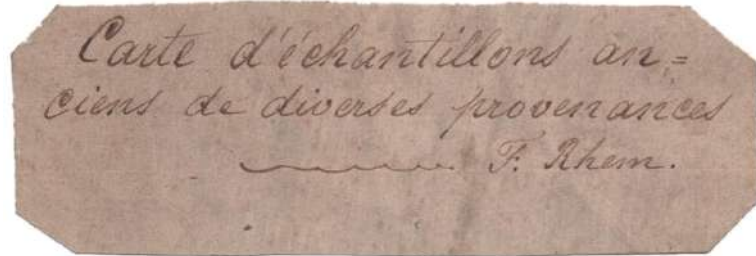 Carte d'échantillons an=
ciens de diverses provenances
F. Rhem.